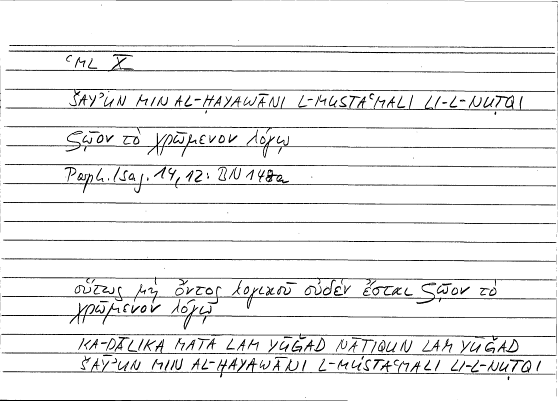 ʿML X
ŠAYʾUN MIN AL-ḤAYAWĀNI L-MUSTAʿMALI LI-L-NUṬQI
ζῷον τὸ χρώμενον λόγῳ
Porph. Isag. 14,12: BN 148a
οὕτως μὴ ὄντος λογικοῦ οὐδέν ἔσται ζῷον τὸ
χρώμενον λόγῳ
KA-ḎĀLIKA MATĀ LAM YŪǦAD NĀṬIQUN LAM YŪǦAD
ŠAYʾUN MIN AL-ḤAYAWĀNI L-MUSTAʿMALI LI-L-NUṬQI